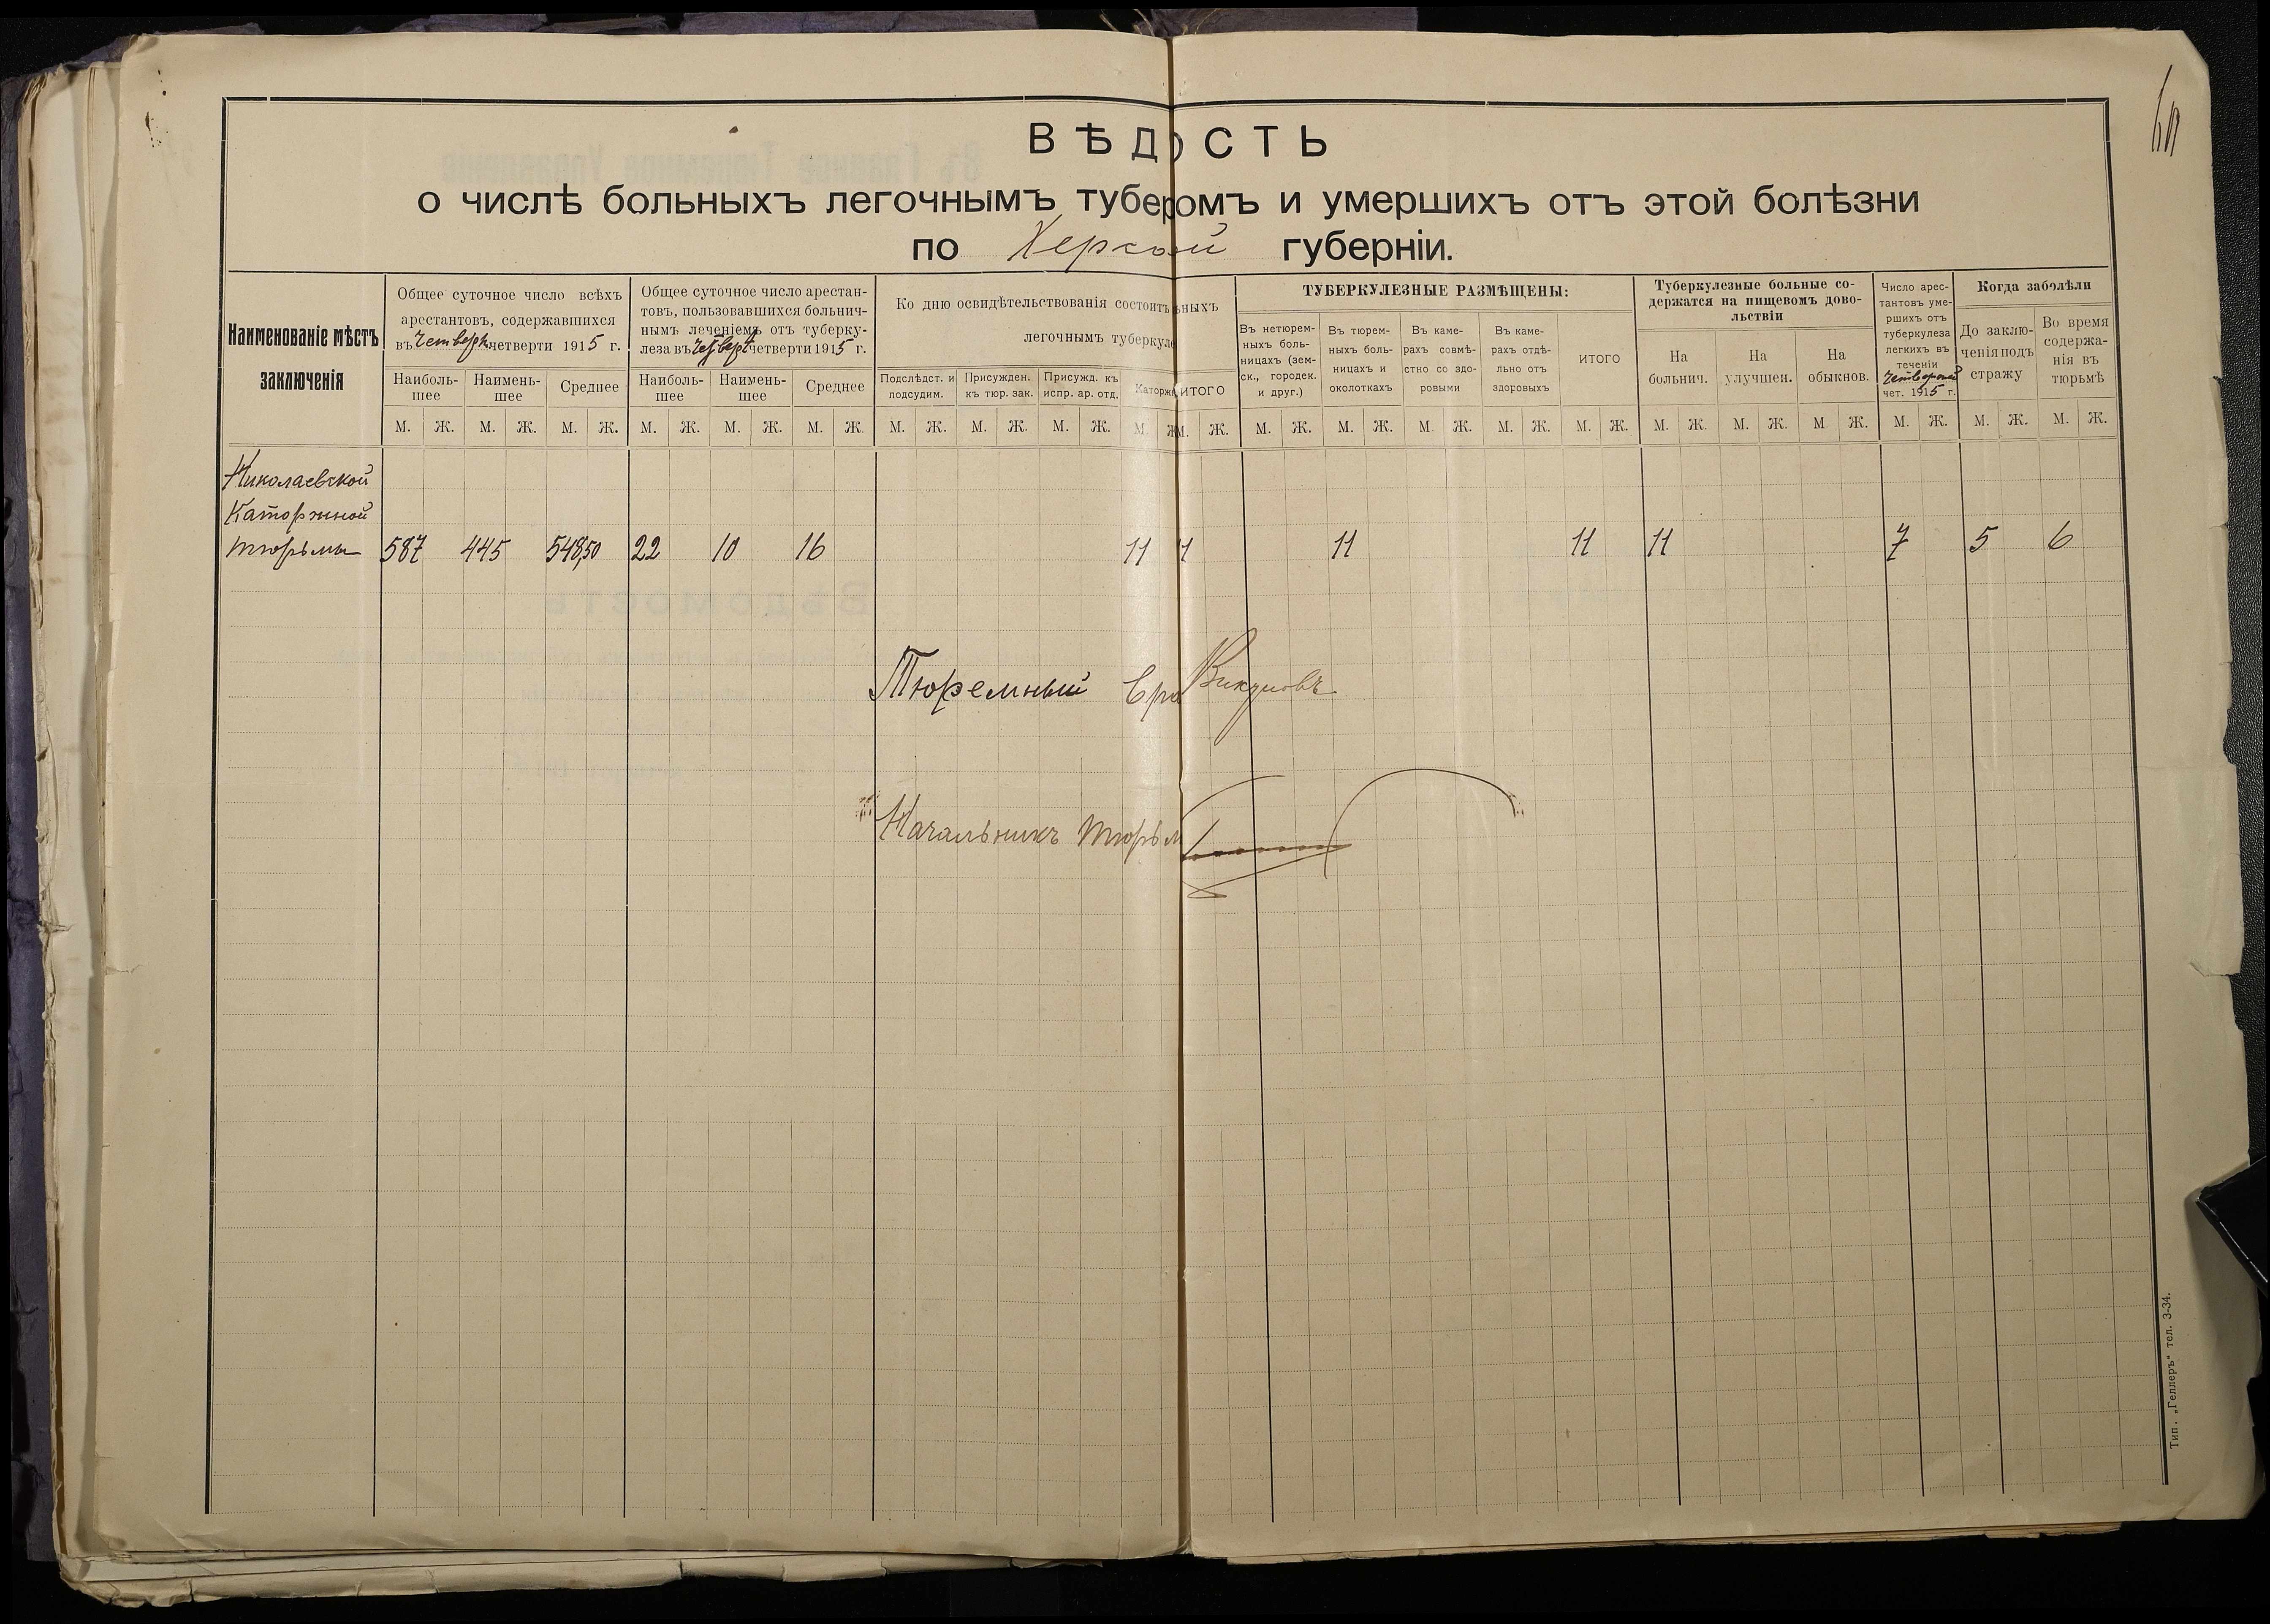 ВѢДОСТЬ
о числѣ больныхъ легочнымъ туберомъ и умершихъ отъ этой болѣзни
по Херсой губерніи.
Наименованіе мѣстъ
заключенія
Общее суточное число всѣхъ
арестантовъ, содержавшихся
въ четверти 1915 г.
Наиболь-
шее
Наимень-
шее
Среднее
Общее суточное число арестан-
товъ, пользовавшихся больнич-
нымъ леченіемъ отъ туберку-
леза въ четверти 1915 г.
Наиболь-
шее
Наимень-
шее
Среднее
Ко дню освидѣтельствованія состоитъ ьныхъ
легочнымъ туберкуле
Подслѣдст. и
подсудим.
Присужден.
къ тюр. зак.
Присужд. къ
испр. ар. отд.
Каторж
ИТОГО
ТУБЕРКУЛЕЗНЫЕ РАЗМѢЩЕНЫ:
Въ нетюрем-
ныхъ боль-
ницахъ (зем-
ск., городск.
и друг.)
Въ тюрем-
ныхъ боль-
ницахъ и
околоткахъ
Въ каме-
рахъ совмѣ-
стно со здо-
ровыми
Въ каме-
рахъ отдѣ-
льно отъ
здоровыхъ
ИТОГО
Туберкулезные больные со-
держатся на пищевомъ дово-
льствіи
На
больнич.
На
улучшен.
На
обыкнов.
Число арес-
тантовъ уме-
ршихъ отъ
туберкулеза
легкихъ въ
теченіи
четвертой
чет. 1915 г.
Когда заболѣли
До заклю-
ченія подъ
стражу
Во время
содержа-
нія въ
тюрьмѣ
М. Ж. М. Ж. М. Ж. М. Ж. М. Ж. М. Ж. М. Ж. М. Ж. М. Ж. М. Ж М. Ж. М. Ж. М. Ж. М. Ж. М. Ж. М. Ж. М. Ж. М. Ж. М. Ж. М. Ж. М. Ж. М. Ж.
Николаевской
Каторжной
тюрьмы 587 445 548,50 22 10 16 11 11 11 11 11 7 5 6
Тюремный вра
Начальникъ тюрьм
Тип. „Геллеръ“ тел. 3-34.